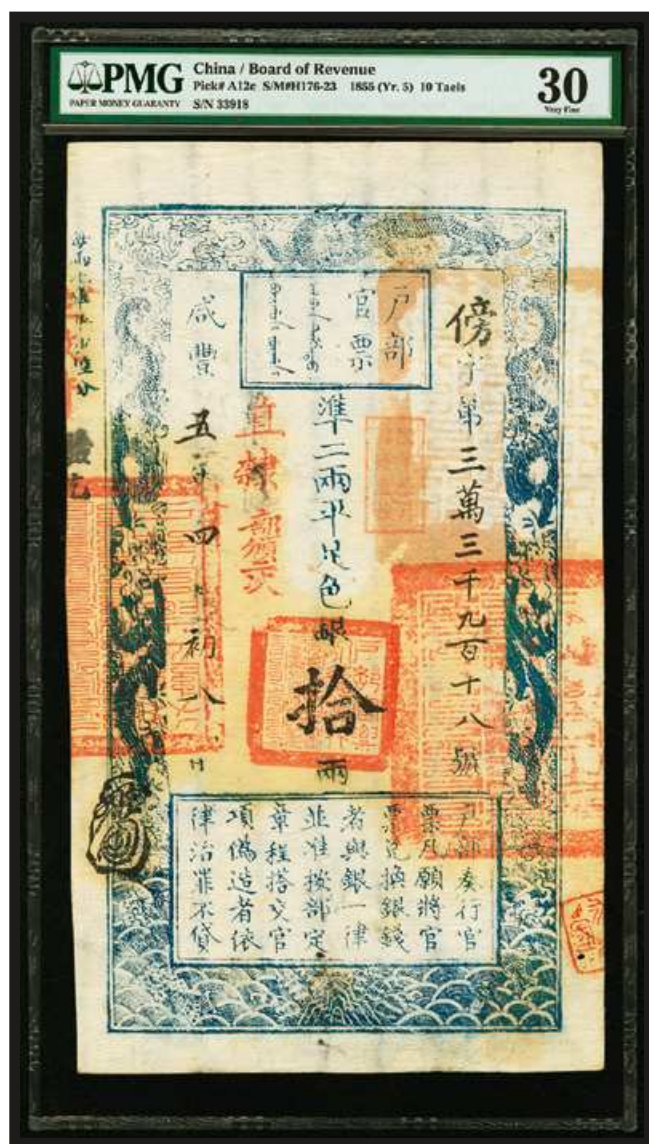 PMG
PAPER MONEY GUARANTY
China / Board of Revenue
Pick# A12c S/M#H176-23 1855 (Yr. 5) 10 Taels
S/N 33918
30
Very Fine
戶部
官票
傍字第三萬三千九百十八號
準二兩平足色銀拾兩
直隸
咸豐五年四月初八日
戶部奏行官
票凡願將官
票兌換銀錢
者與銀一律
並准按部定
章程搭交官
項偽造者依
律治罪不貸